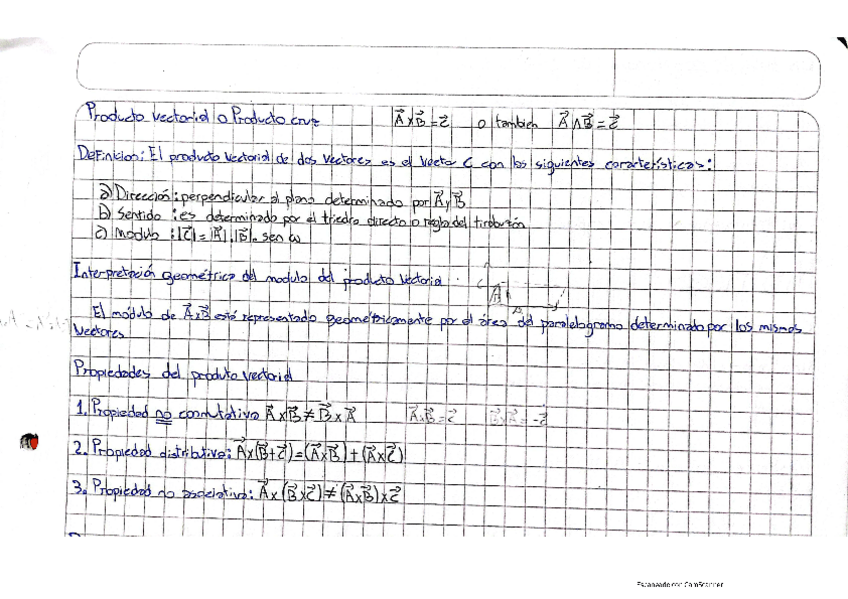 Producto vectorial o Producto cruz A⃗ x B⃗ = C⃗ o tambien A⃗ ∧ B⃗ = C⃗
Definicion: El producto vectorial de dos vectores es el vector C con las siguientes características:
a) Dirección: perpendicular al plano determinado por A⃗ y B⃗
b) Sentido: es determinado por el triedro directo o regla del tirabuzón
c) Modulo: |C⃗| = |A⃗|.|B⃗|. sen ω
Interpretación geométrica del modulo del producto vectorial
El módulo de A⃗ x B⃗ está representado geométricamente por el área del paralelogramo determinado por los mismos
vectores
Propiedades del producto vectorial
1. Propiedad no conmutativa A⃗ x B⃗ ≠ B⃗ x A⃗ A⃗ x B⃗ = C⃗ B⃗ x A⃗ = -C⃗
2. Propiedad distributiva: A⃗ x (B⃗ + C⃗) = (A⃗ x B⃗) + (A⃗ x C⃗)
3. Propiedad no asociativa: A⃗ x (B⃗ x C⃗) ≠ (A⃗ x B⃗) x C⃗
Escaneado con CamScanner